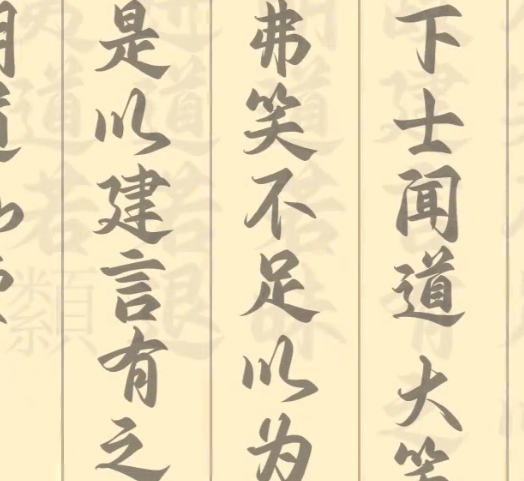 下士闻道大笑
弗笑不足以为
是以建言有之
明道如费
纇